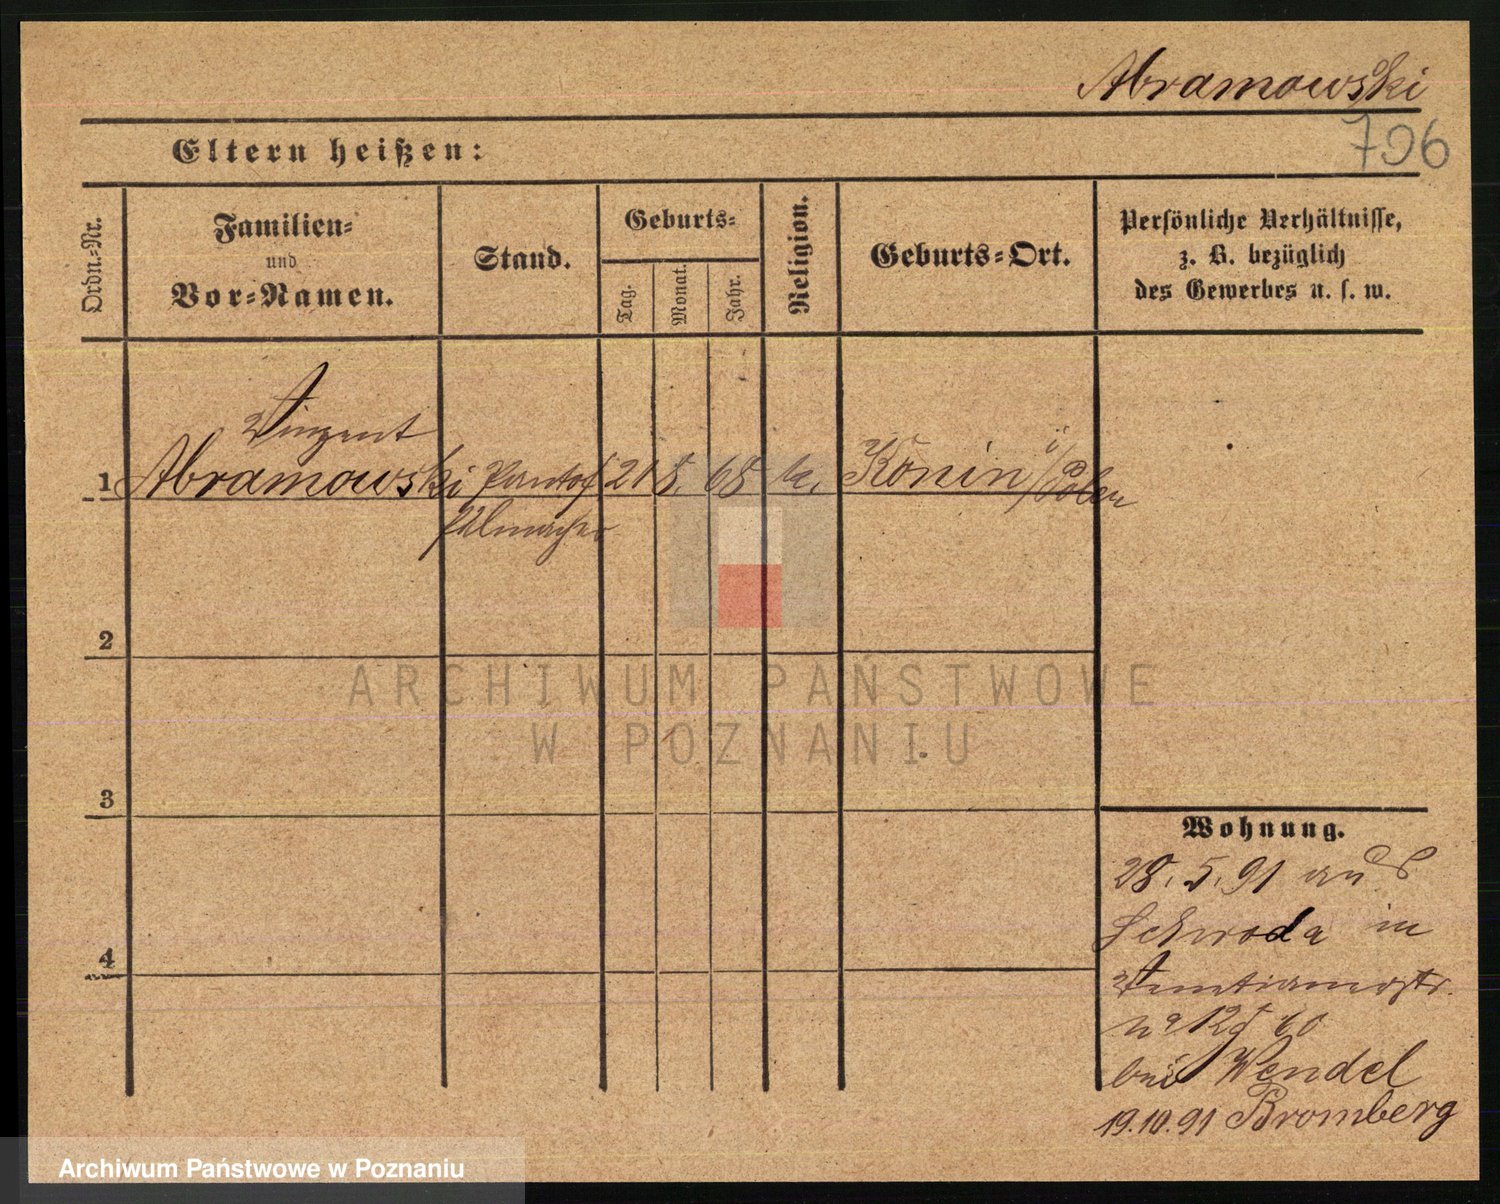 Abramowski
796
Eltern heißen:
Ordn.-Nr.
Familien-
und
Vor-Namen.
Stand.
Geburts-
Tag.
Monat.
Jahr.
Religion.
Geburts-Ort.
Persönliche Verhältnisse,
z. B. bezüglich
des Gewerbes u. s. w.
Vinzent
1 Abramowski Pantof 21 8. 68 k. Konin i/Polen
felmacher
2
ARCHIWUM PAŃSTWOWE
W POZNANIU
3
Wohnung.
28. 5. 91 aus
Schroda in
Venetianerstr.
No 12
bei Wendel
19.10.91 Bromberg
4
Archiwum Państwowe w Poznaniu